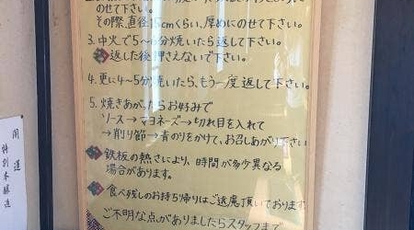 のせて下さい。
その際、直径15cmくらい、厚めにのせて下さい。
3. 中火で5~6分焼いたら返して下さい。
返した後押さえないで下さい。
4. 更に4~5分焼いたら、もう一度 返して下さい。
5. 焼きあがったらお好みで
ソース→マヨネーズ→切れ目を入れて
→削り節→青のりをかけて、お召しあがり下さい
鉄板の熱さにより、時間が多少異なる
場合があります。
食べ残しのお持ち帰りはご遠慮頂いております。
ご不明な点がありましたらスタッフまで
開運
特別本醸造